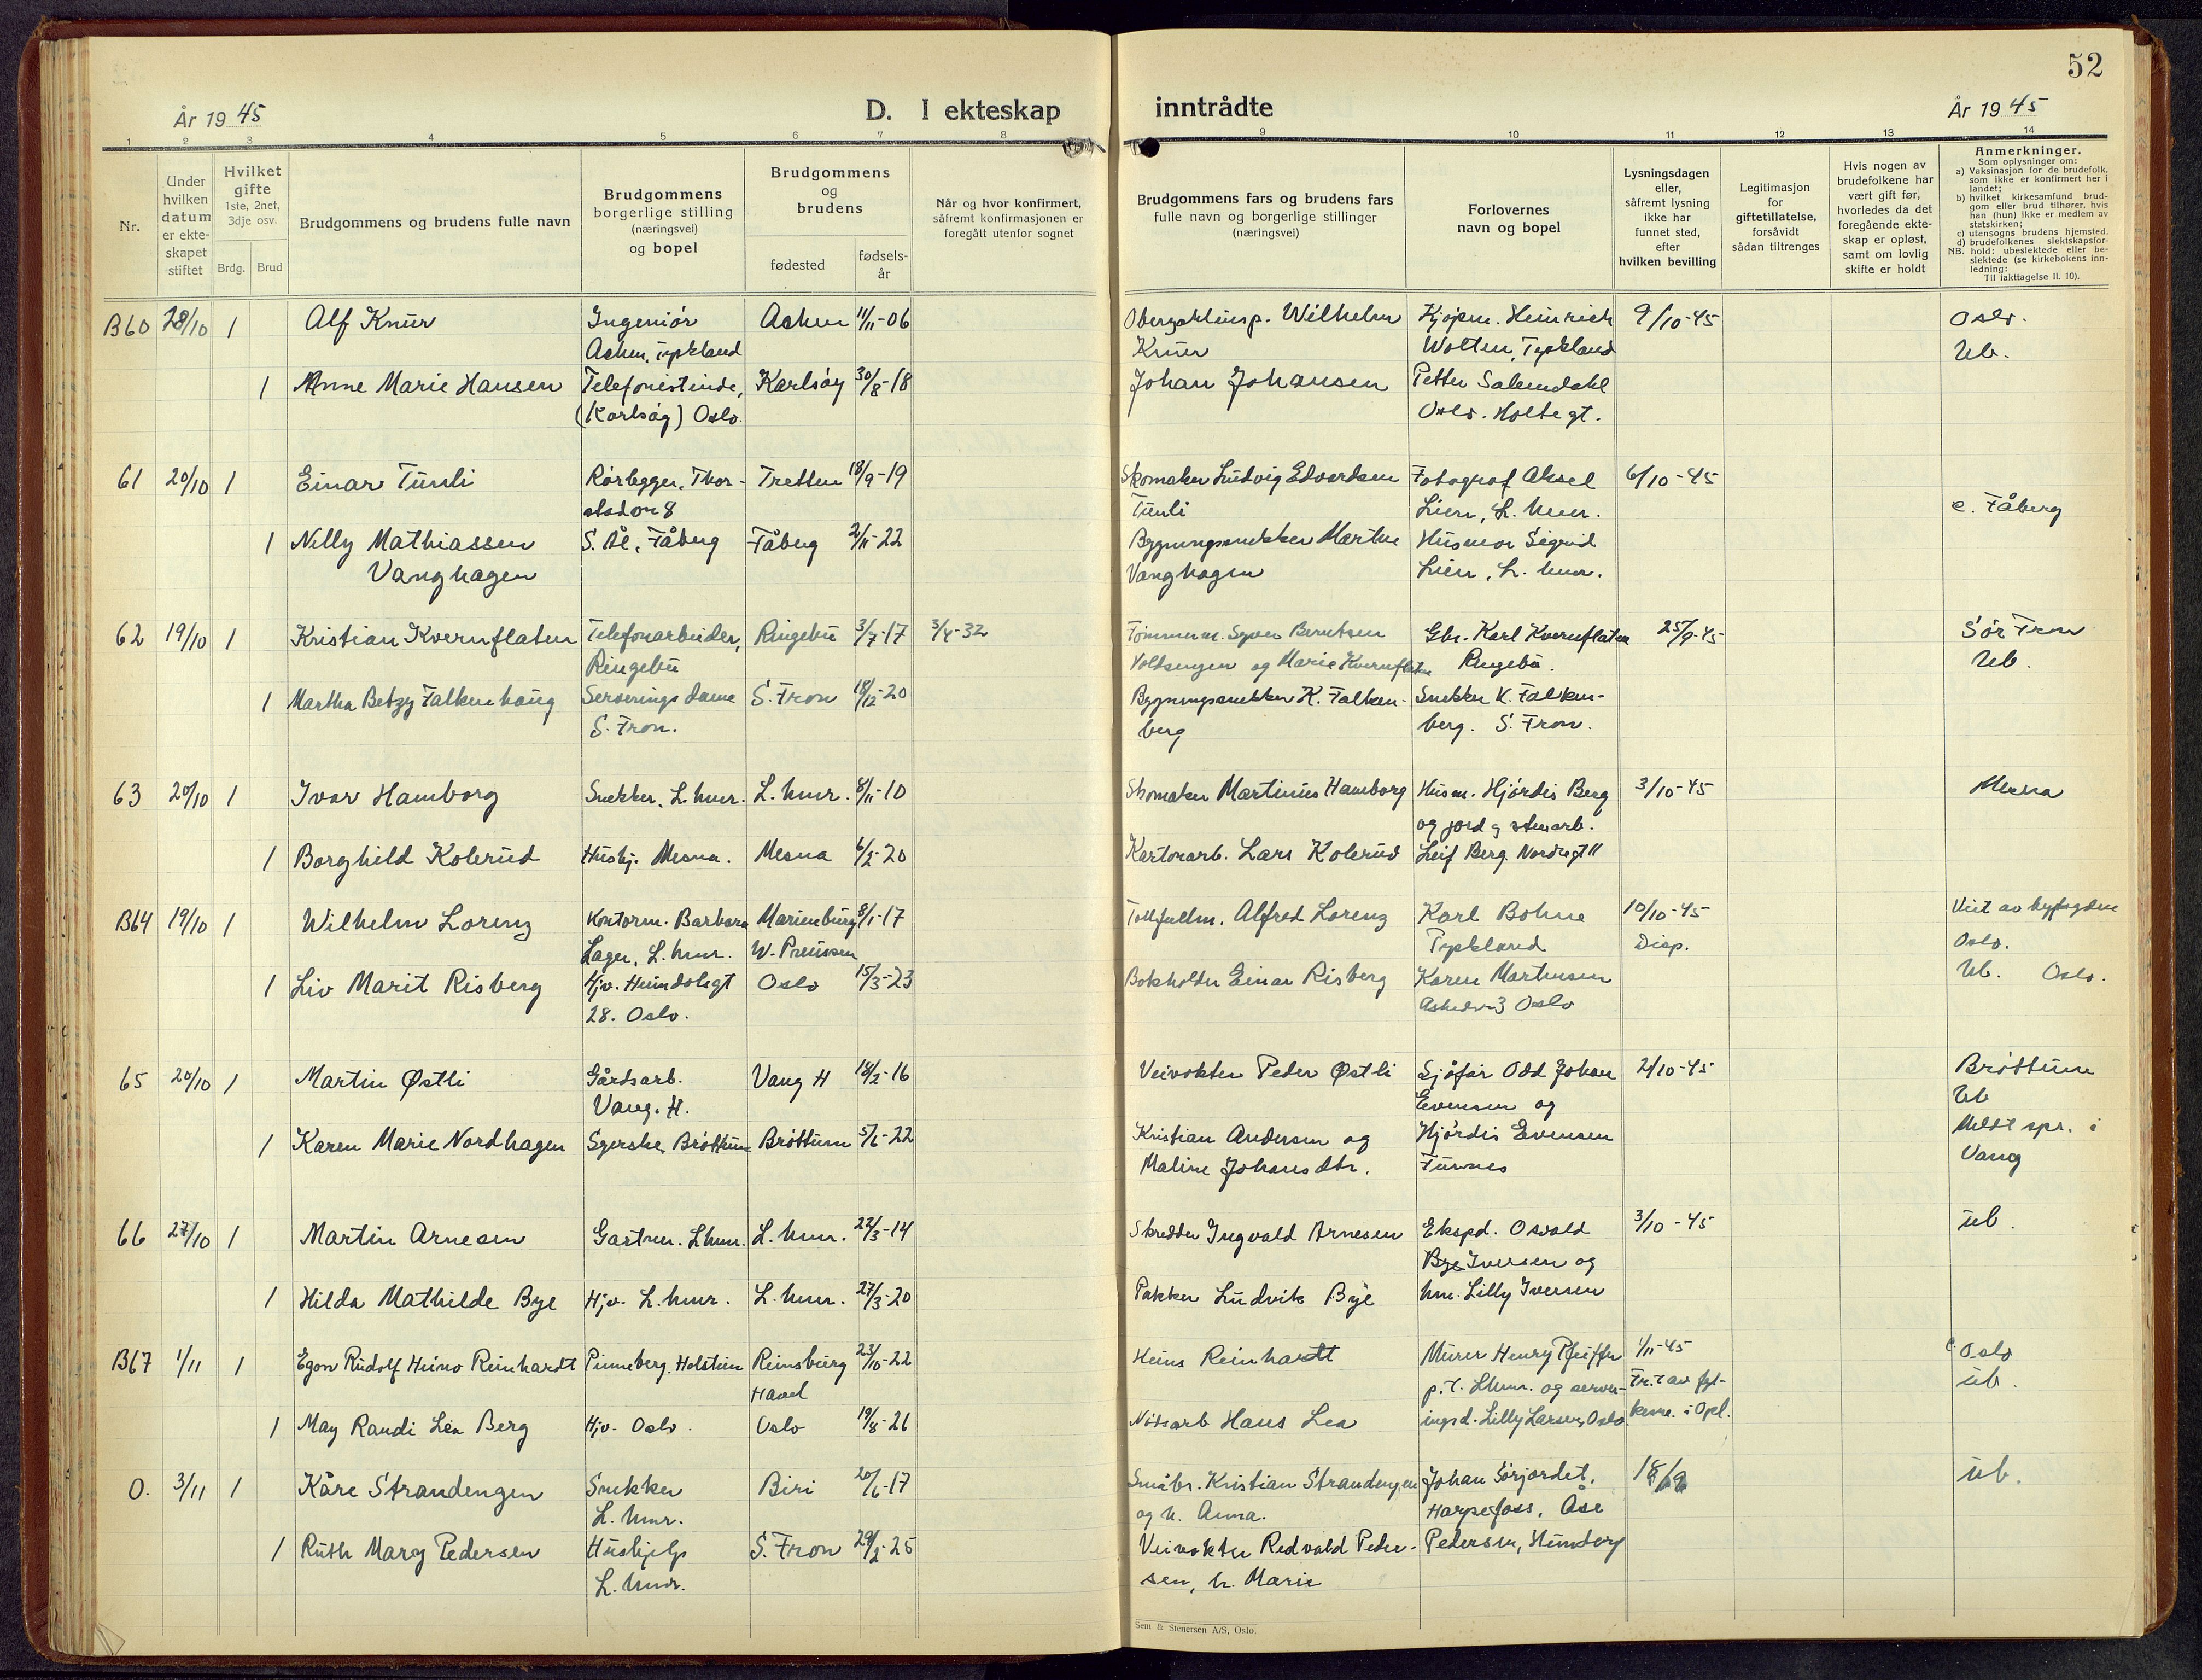 52
År 1945
D. I ekteskap
inntrådte
År 1945
1 2 3 4 5 6 7 8 9 10 11 12 13 14
Nr.
Under
hvilken
datum
er ekte-
skapet
stiftet
Hvilket
gifte
1ste, 2net,
3dje osv.
Brdg. Brud
Brudgommens og brudens fulle navn
Brudgommens
borgerlige stilling
(næringsvei)
og bopel
Brudgommens
og
brudens
fødested
fødsels-
år
Når og hvor konfirmert,
såfremt konfirmasjonen er
foregått utenfor sognet
Brudgommens fars og brudens fars
fulle navn og borgerlige stillinger
(næringsvei)
Forlovernes
navn og bopel
Lysningsdagen
eller,
såfremt lysning
ikke har
funnet sted,
efter
hvilken bevilling
Legitimasjon
for
giftetillatelse,
forsåvidt
sådan tiltrenges
Hvis nogen av
brudefolkene har
vært gift før,
hvorledes da det
foregående ekte-
skap er opløst,
samt om lovlig
skifte er holdt
Anmerkninger.
Som oplysninger om:
a) Vaksinasjon for de brudefolk,
som ikke er konfirmert her i
landet;
b) hvilket kirkesamfund brud-
gom eller brud tilhører, hvis
han (hun) ikke er medlem av
statskirken;
c) utensogns brudens hjemsted.
d) brudefolkenes slektskapsfor-
NB. hold: ubeslektede eller be-
slektede (se kirkebokens inn-
ledning:
Til iakttagelse II. 10).
B60 28/10 1 Alf Knur Ingeniør Achen 11/11-06 Wilhelm Kjøpm. Heinrich 9/10-45 Oslo.
Achen, Tyskland Knur Wolten, Tyskland Ub.
1 Anne Marie Hansen Telefonistinde, Karlsøy 30/8-18 Johan Johansen Petter Salemdahl
(Karlsøy) Oslo. Oslo. Holtegt.
61 20/10 1 Einar Tunli Rørlegger, Thor- Tretten 18/9-19 Skomaker Ludvig Edvardsen Fotograf Aksel 6/10-45
stadon 8 Tunli Lien, L.hmr. c. Fåberg
1 Nelly Mathiassen S. Ål, Fåberg Fåberg 2/11-22 Bygningssnekker Martin Husmor Sigrid
Vanghagen Vanghagen Lien, L.hmr.
62 19/10 1 Kristian Kvernflaten Telefonarbeider, Ringebu 3/7-17 3/4-32 Tømmerm. Syver Berntsen Gbr. Karl Kvernflaten 25/9-45 Sør Fron
Ringebu Voldsengen og Marie Kvernflaten Ringebu. Ub.
1 Martha Betzy Falkenhaug Serveringsdame S. Fron 18/12-20 Bygningssnekker K. Falken- Snekker K. Falken-
S. Fron. berg berg. S. Fron.
63 20/10 1 Ivar Hamborg Snekker, L.hmr. L.hmr. 8/11-10 Skomaker Martinus Hamborg Husm. Hjørdis Berg 3/10-45 Mesna
og jord g stenarb.
1 Borghild Kolerud Hushj. Mesna. Mesna 6/2-20 Kartonarb. Lars Kolerud Leif Berg. Nordregt 11
B64 19/10 1 Wilhelm Lorenz Kontorm. Barbara Marienburg 8/1-17 Tollfullm. Alfred Lorenz Karl Bohne 10/10-45 Viet av byfogden
Lager, L.hmr. W. Preussen Tyskland Disp. Oslo.
1 Liv Marit Risberg Hjv. Heimdalsgt Oslo 15/3-23 Bokholder Einar Risberg Karen Martinsen Ub. Oslo.
28. Oslo. Oslo
65 20/10 1 Martin Østli Gårdsarb. Vang H 18/2-16 Veivokter Peder Østli Sjåfør Odd Johan 2/10-45 Brøttum
Vang. H. Evensen og Ub
1 Karen Marie Nordhagen Syerske, Brøttum Brøttum 5/6-22 Kristian Andersen og Hjørdis Evensen Meldt spr. i
Maline Johansdtr. Furnes Vang
66 27/10 1 Martin Arnesen Gartner. Lhmr. L.hmr. 22/3-14 Skredder Ingvald Arnesen Ekspd. Osvald 3/10-45 ub.
Bye Iversen og
1 Hilda Mathilde Bye Hjv. L.hmr. L.hmr. 27/3-20 Pakker Ludvik Bye hm. Lilly Iversen
B67 1/11 1 Egon Rudolf Heino Reinhardt Pinneberg, Holstein Reinsburg 23/10-22 Heins Reinhardt Murer Henry Pfeiffer 1/11-45 c. Oslo
Havel p.t. Lhmr. og server- Fr.t av fyl- ub.
1 May Randi Lea Berg Hjv. Oslo. Oslo 19/8-26 Hans Lea ingsd. Lilly Larsen, Oslo. kesm. i Opl.
O. 3/11 1 Kåre Strandengen Snekker Biri 20/6-17 Småbr. Kristian Strandengen Johan Sørjordet, 18/9 ub.
L.hmr. og h. Anna. Harpefoss, Åse
1 Ruth Marg Pedersen Hushjelp S. Fron 29/2-25 Veivokter Redvald Peder- Pedersen, Hundorp
L.hmr. sen, h. Marie
Sem & Stenersen A/S, Oslo.